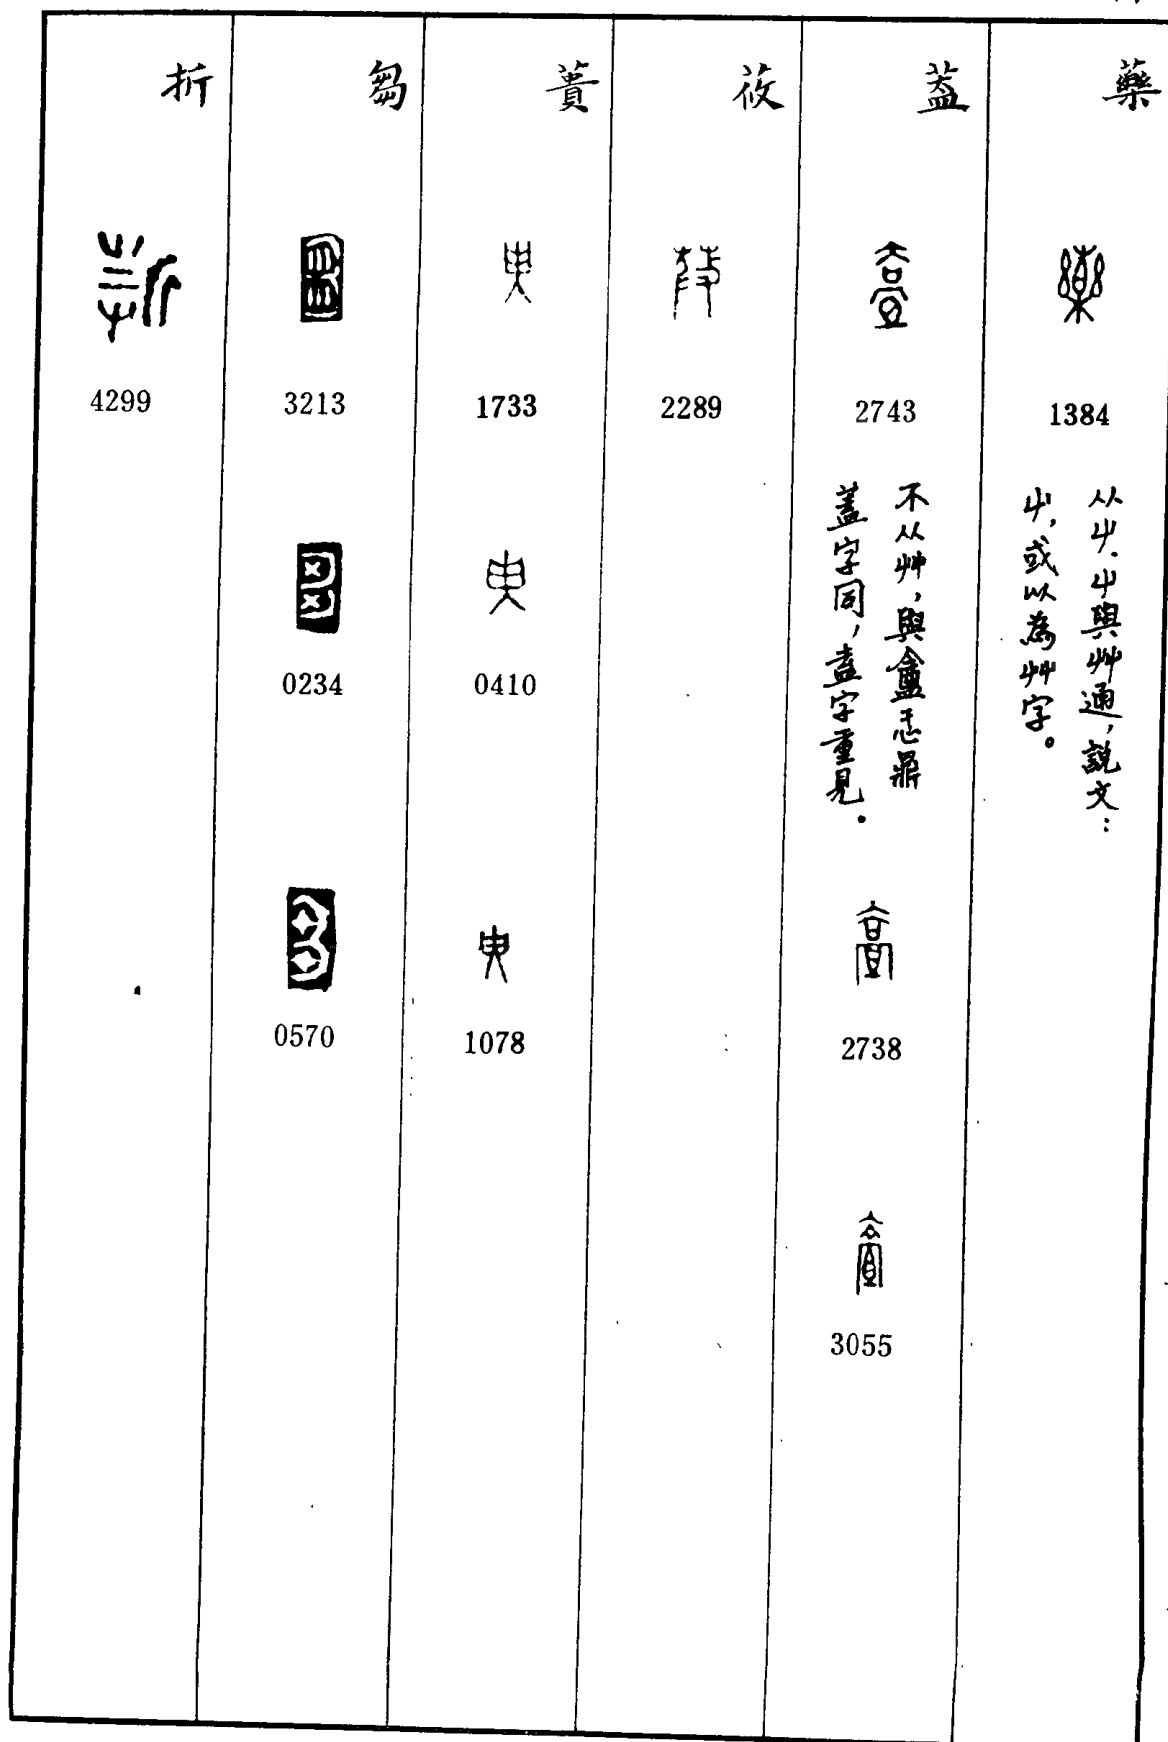 藥
1384
从屮.屮與艸通,説文:
屮,或以為艸字。
蓋
2743
不从艸,與酓盍忎鼎
蓋字同,盍字重見.
2738
3055
莜
2289
蕢
1733
0410
1078
芻
3213
0234
0570
折
4299